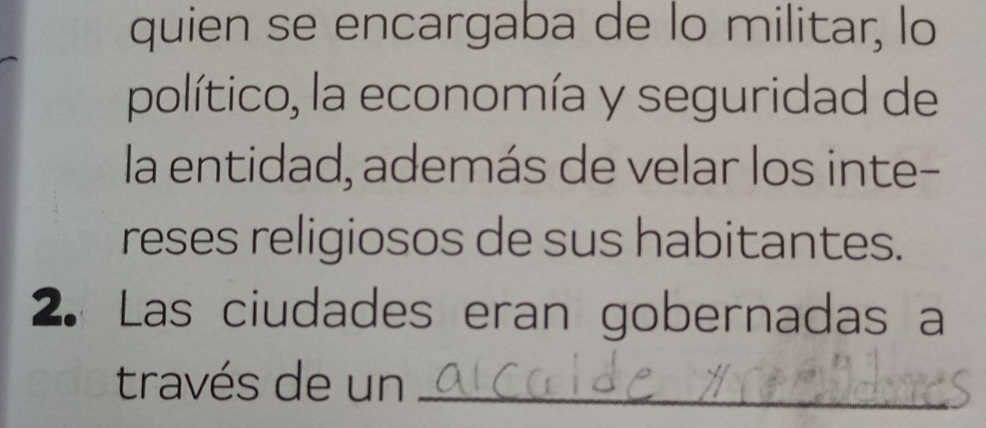 quien se encargaba de lo militar, lo
político, la economía y seguridad de
la entidad, además de velar los inte-
reses religiosos de sus habitantes.
2. Las ciudades eran gobernadas a
través de un alcalde y regidores